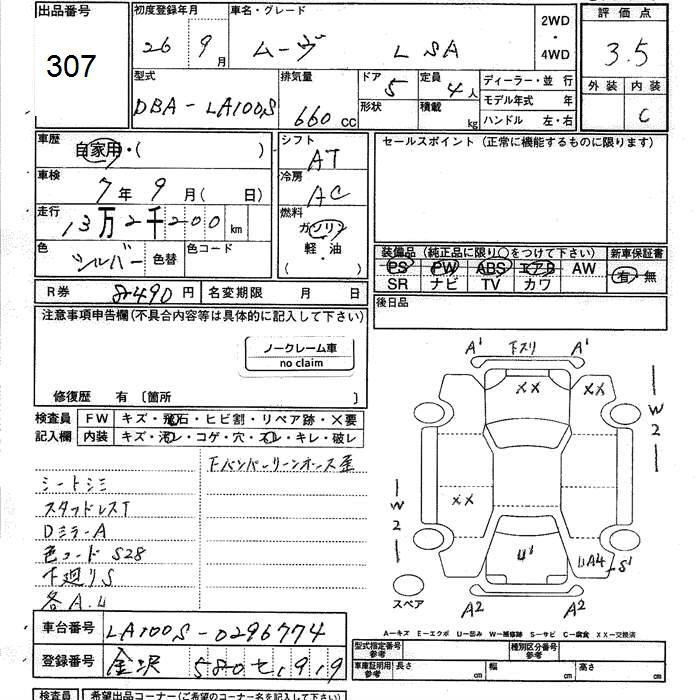 出品番号
307
初度登録年月
26 9 月
車名・グレード
ムーヴ L SA
2WD
・
4WD
評価点
3.5
外装 内装
C
型式
DBA-LA100S
排気量
660 cc
ドア
5
形状
定員
4人
積載
kg
ディーラー・並行
モデル年式 年
ハンドル 左・右
車歴
自家用・( )
車検
7年 9月( 日)
走行
13万2千200 km
色
シルバー
色替
色コード
シフト
AT
冷房
AC
燃料
ガソリン
軽・油
( )
セールスポイント (正常に機能するものに限ります)
装備品 (純正品に限り○をつけて下さい)
PS PW ABS エアB AW
SR ナビ TV カワ
新車保証書
有・無
後日品
R券 8490円
名変期限 月 日
注意事項申告欄(不具合内容等は具体的に記入して下さい)
ノークレーム車
no claim
修復歴 有 〔箇所 〕
検査員
記入欄
FW キズ・飛石・ヒビ割・リペア跡・×要
内装 キズ・汚レ・コゲ・穴・スレ・キレ・破レ
シートシミ
スタッドレスT
DミラーA
色コード S28
下廻りS
各A.U
A1 下スリ A1
XX XX
W2
XX
W2
U1
UA4 S1
A2 A2
スペア
A-キズ E-エクボ U-凹み W-補修跡 S-サビ C-腐食 XX-交換済
車台番号 LA100S-0296774
登録番号 金沢 580 セ 1919
型式指定番号
参考
種別区分番号
参考
車庫証明用
参考
長さ 幅 高さ
検査員 希望出品コーナー(ご希望のコーナー名を記入して下さい)